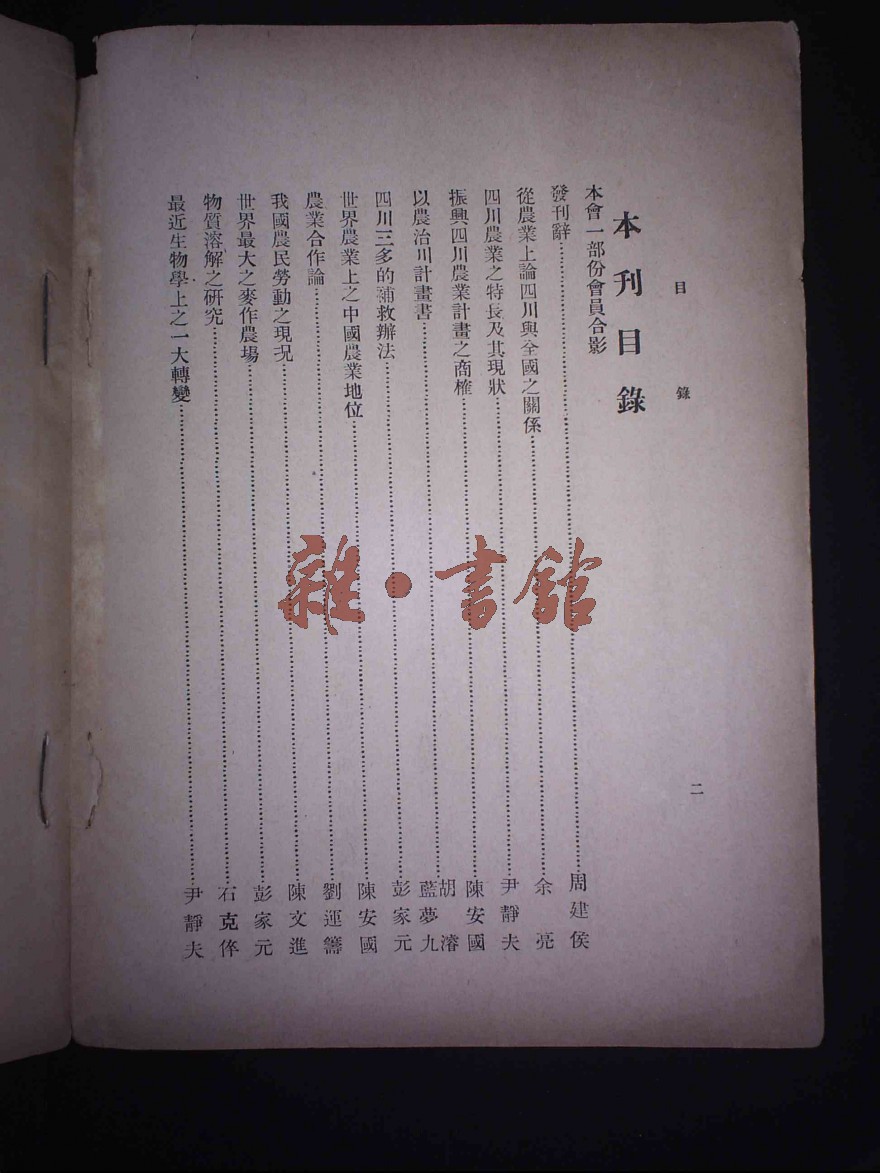 目錄
二
本刊目錄
本會一部份會員合影
發刊辭……周建侯
從農業上論四川與全國之關係……余亮
四川農業之特長及其現狀……尹靜夫
振興四川農業計畫之商榷……陳安國
以農治川計畫書……胡濬 藍夢九
四川三多的補救辦法……彭家元
世界農業上之中國農業地位……陳安國
農業合作論……劉運籌
我國農民勞動之現況……陳文進
世界最大之麥作農場……彭家元
物質溶解之研究……石克倅
最近生物學上之一大轉變……尹靜夫
雜·書館